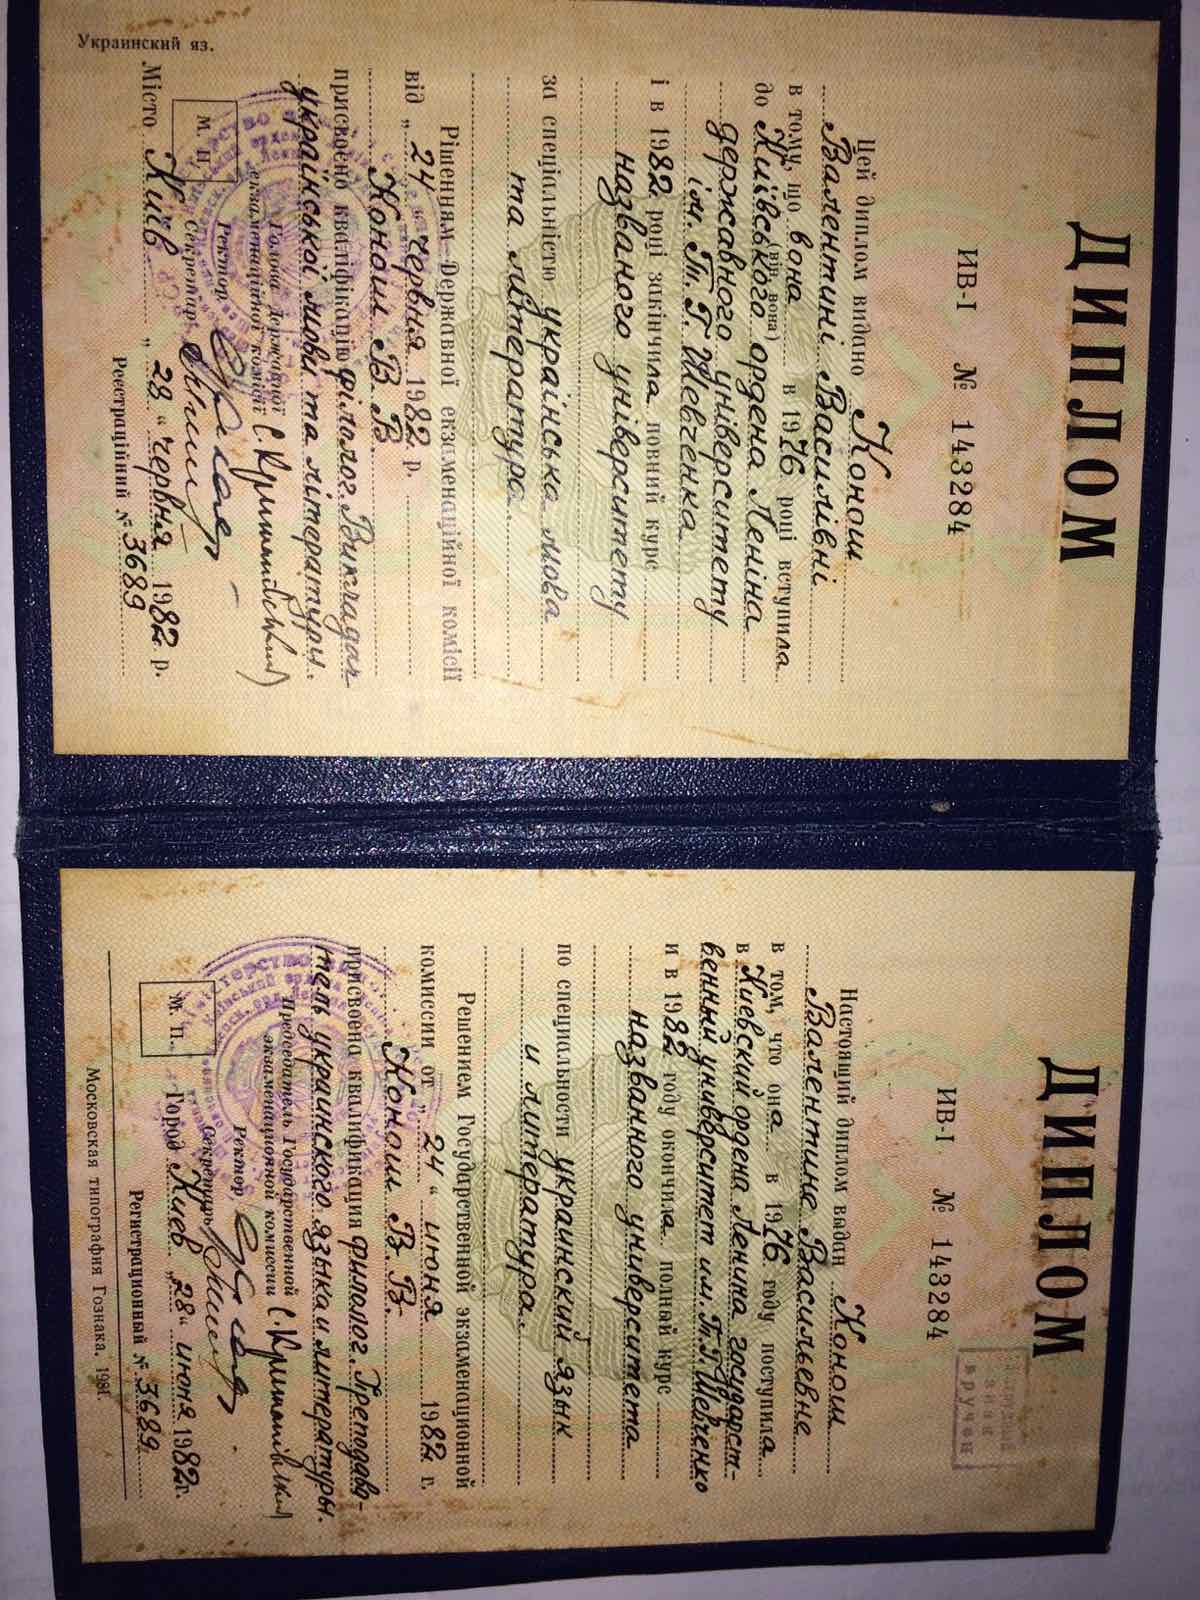 ДИПЛОМ
ИВ-I № 143284
Цей диплом видано Конош
Валентині Василівні
в тому, що вона в 1976 році вступила
(він, вона)
до Київського ордена Леніна
державного університету
ім. Т. Г. Шевченка
і в 1982 році закінчила повний курс
названого університету
за спеціальністю українська мова
та література.
Рішенням Державної екзаменаційної комісії
від „ 24 “ червня 1982 р.
Конош В. В.
присвоєно кваліфікацію філолог. Викладач
української мови та літератури.
Голова Державної
екзаменаційної комісії
Ректор
Секретар
М. П.
Місто Київ „ 28 “ червня 1982 р.
Реєстраційний № 3689
Украинский яз.
ДИПЛОМ
ИВ-I № 143284
Нагрудный
знак
вручен
Настоящий диплом выдан Конош
Валентине Васильевне
в том, что она в 1976 году поступила
в Киевский ордена Ленина государст-
венный университет им. Т. Г. Шевченко
и в 1982 году окончила полный курс
названного университета
по специальности украинский язык
и литература.
Решением Государственной экзаменационной
комиссии от „ 24 “ июня 1982 г.
Конош В. В.
присвоена квалификация филолог. Преподава-
тель украинского языка и литературы.
Председатель Государственной
экзаменационной комиссии
Ректор
Секретарь
М. П.
Город Киев „ 28 “ июня 1982 г.
Регистрационный № 3689
Московская типография Гознака. 1981.